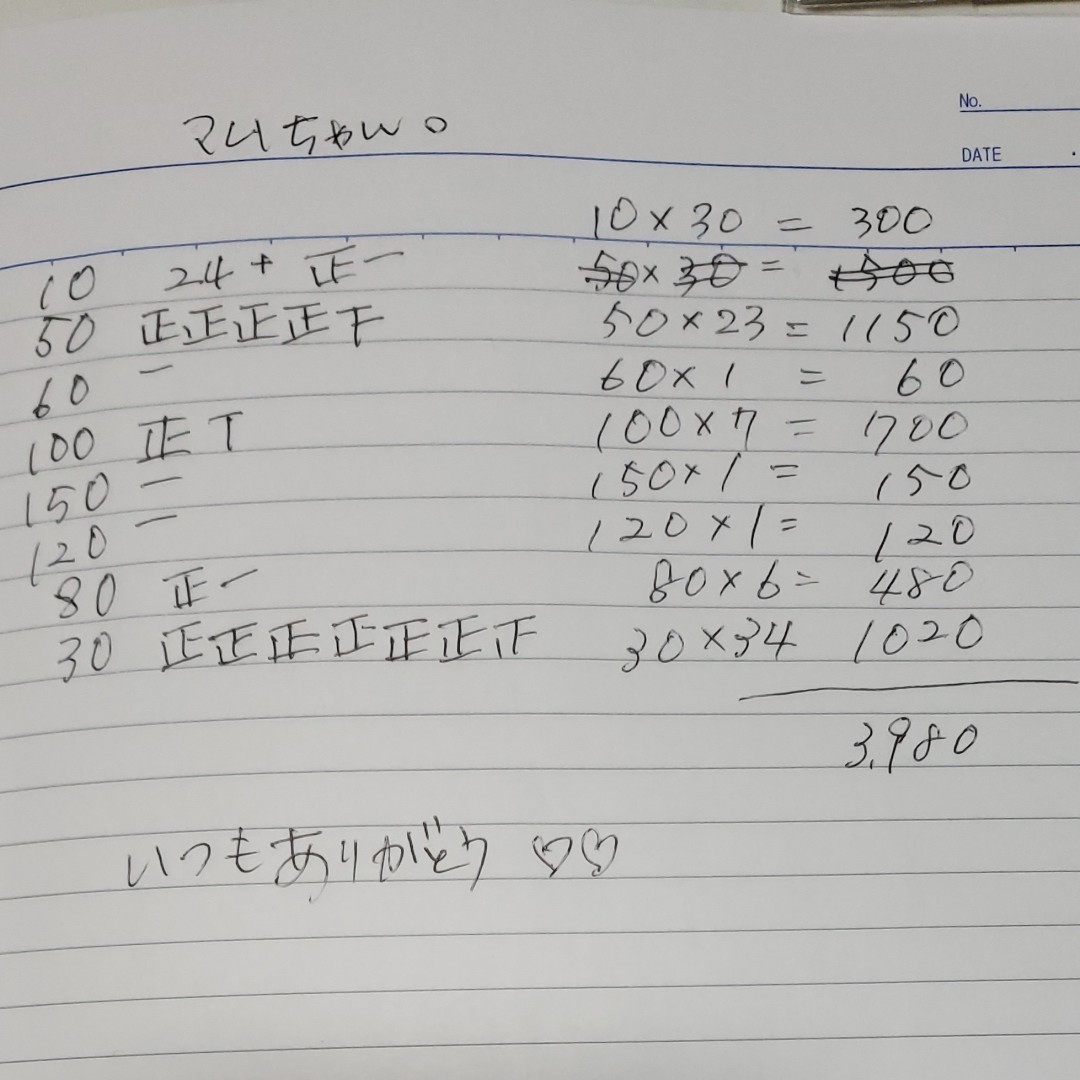 No.
DATE
マリちゃん。
10×30 = 300
10 24+正一 50×30 = 1500
50 正正正正下 50×23 = 1150
60 一 60×1 = 60
100 正T 100×7 = 700
150 一 150×1 = 150
120 一 120×1= 120
80 正一 80×6= 480
30 正正正正正正正 30×34 1020
3,980
いつもありがとう♡♡